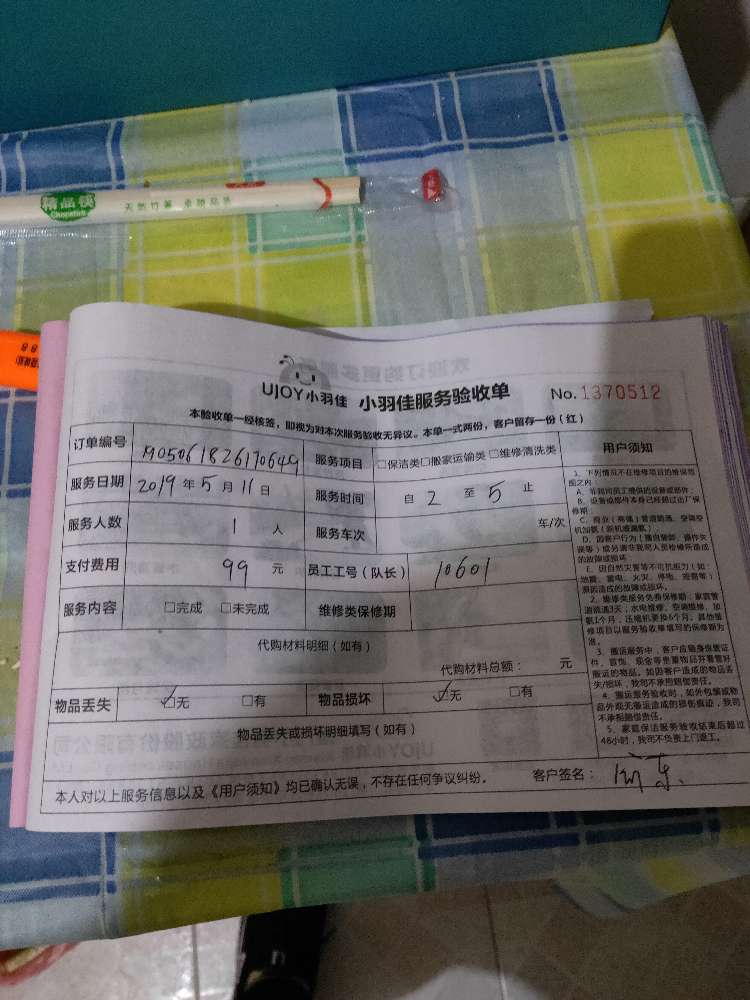 精品筷
Chopsticks
天然竹筷 卓越品质
UJOY小羽佳 小羽佳服务验收单 No. 1370512
本验收单一经核签，即视为对本次服务验收无异议。本单一式两份，客户留存一份（红）
订单编号 M05061826170649 服务项目 □保洁类□搬家运输类□维修清洗类 用户须知
服务日期 2019年5月11日 服务时间 自 2 至 5 止
服务人数 1 人 服务车次 车/次
支付费用 99 元 员工工号（队长） 10601
服务内容 □完成 □未完成 维修类保修期
代购材料明细（如有）
代购材料总额： 元
物品丢失 ☑无 □有 物品损坏 ☑无 □有
物品丢失或损坏明细填写（如有）
本人对以上服务信息以及《用户须知》均已确认无误，不存在任何争议纠纷。 客户签名：
1、下列情况不在维修项目的维保范
围之内
A、非我司员工提供的设备或部件；
B、设备或部件本身已经超过出厂保
修期；
C、商业（商铺）管道疏通、空调空
机加氨（新机或漏氨）
D、因客户行为（擅自装卸、操作失
误等）或另请非我司人员检修所造成
的故障或损坏
E、因自然灾害等不可抗拒力（如：
地震、雷电、火灾、停电、短路等）
原因造成的故障或损坏。
2、维修类服务免费保修期：家庭管
道疏通3天，水电维修、空调维修、加
氨1个月，压缩机更换6个月。其他维
修项目以服务验收单填写的保修期为
准。
3、搬运服务中，客户应随身保管证
件、首饰、现金等贵重物品并看管好
搬运的物品。如因客户造成的物品丢
失/损坏，我司不承担赔偿责任。
4、搬运服务验收时，如外包装或物
品外观无搬运造成的损伤痕迹，我司
不承担赔偿责任。
5、家庭保洁服务验收结束后超过
48小时，我司不负责上门返工。